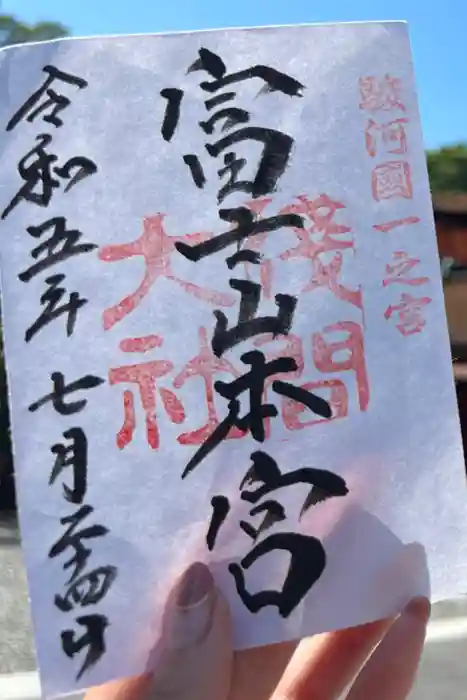 駿河國一之宮
富士山本宮
淺間大社
令和五年七月二十四日